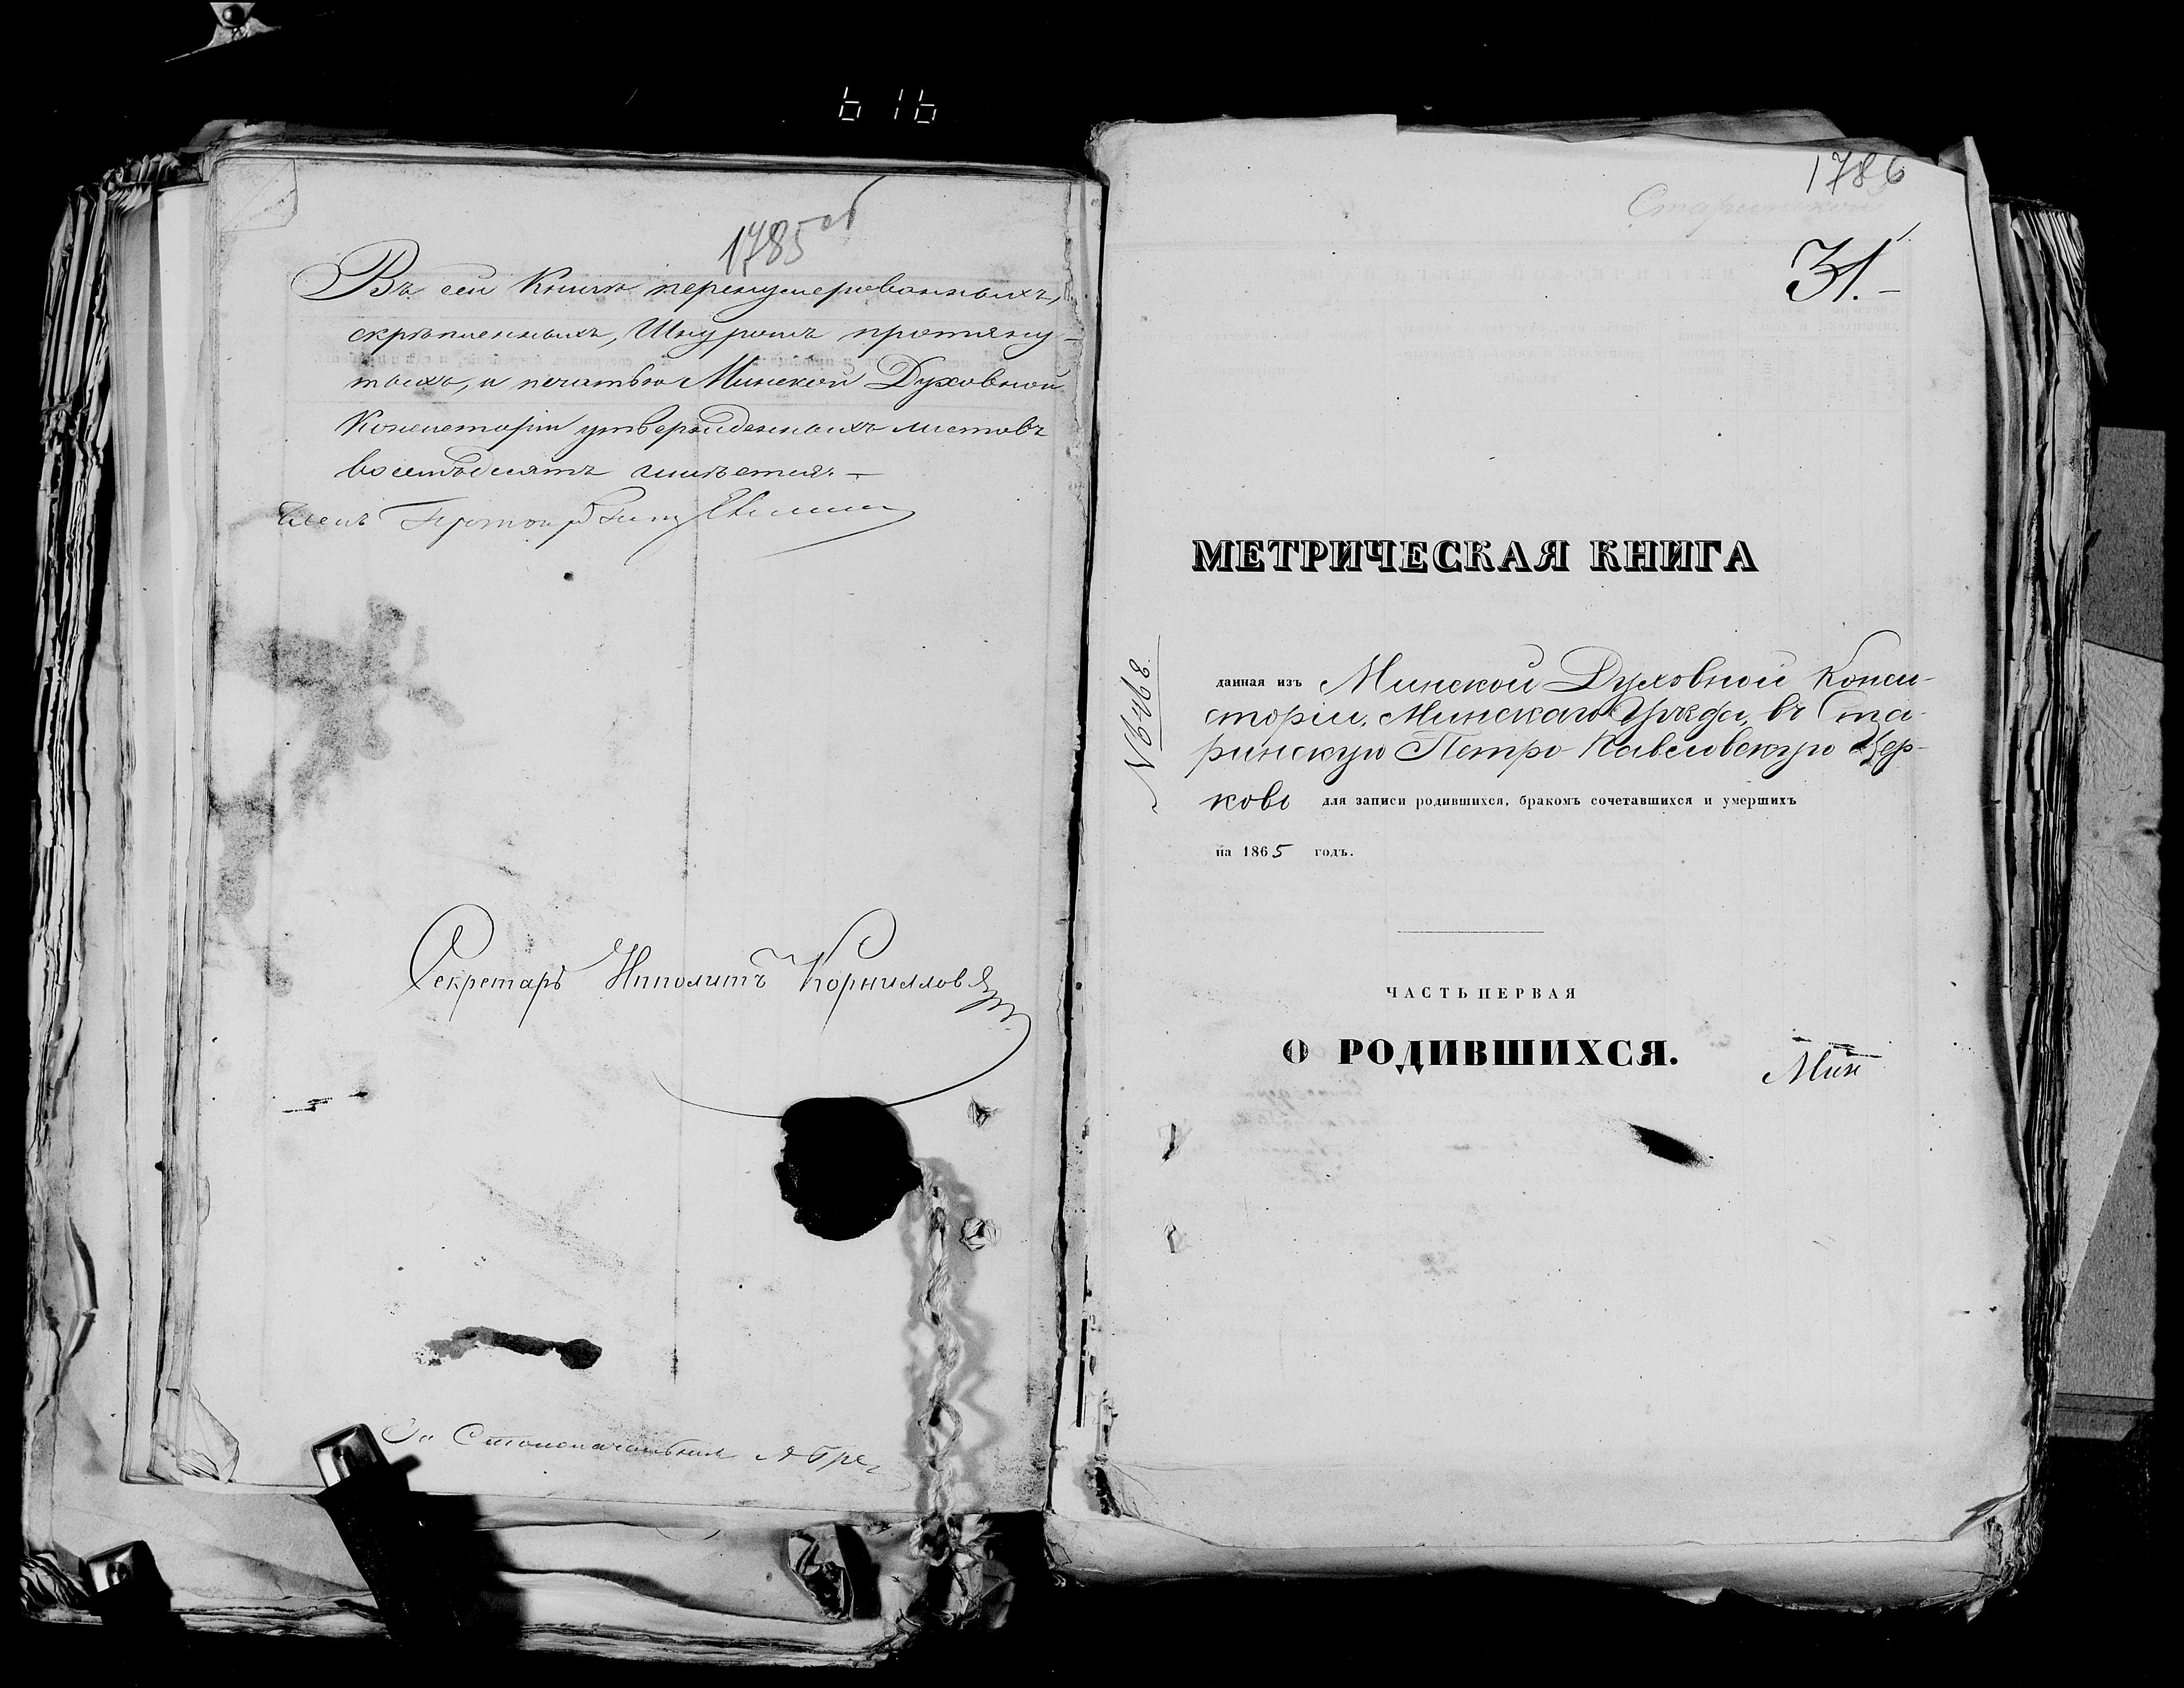 616
1785об
Въ сей Книгѣ перенумерованныхъ,
скрѣпленныхъ, Шнуромъ протяну-
тыхъ, и печатью Минской Духовной
Консисторіи утвержденныхъ листовъ
восемьдесятъ имѣется. —
Членъ
Секретарь Ипполитъ Корниллов
За Столоначальника
1786
Старинской
31. —
МЕТРИЧЕСКАЯ КНИГА
№ 6468.
данная изъ Минской Духовной Конси-
сторіи, Минскаго Уѣзда, въ Ста-
ринскую Петро-Павловскую Цер-
ковь для записи родившихся, бракомъ сочетавшихся и умершихъ
на 1865 годъ.
ЧАСТЬ ПЕРВАЯ
О РОДИВШИХСЯ.
Мин